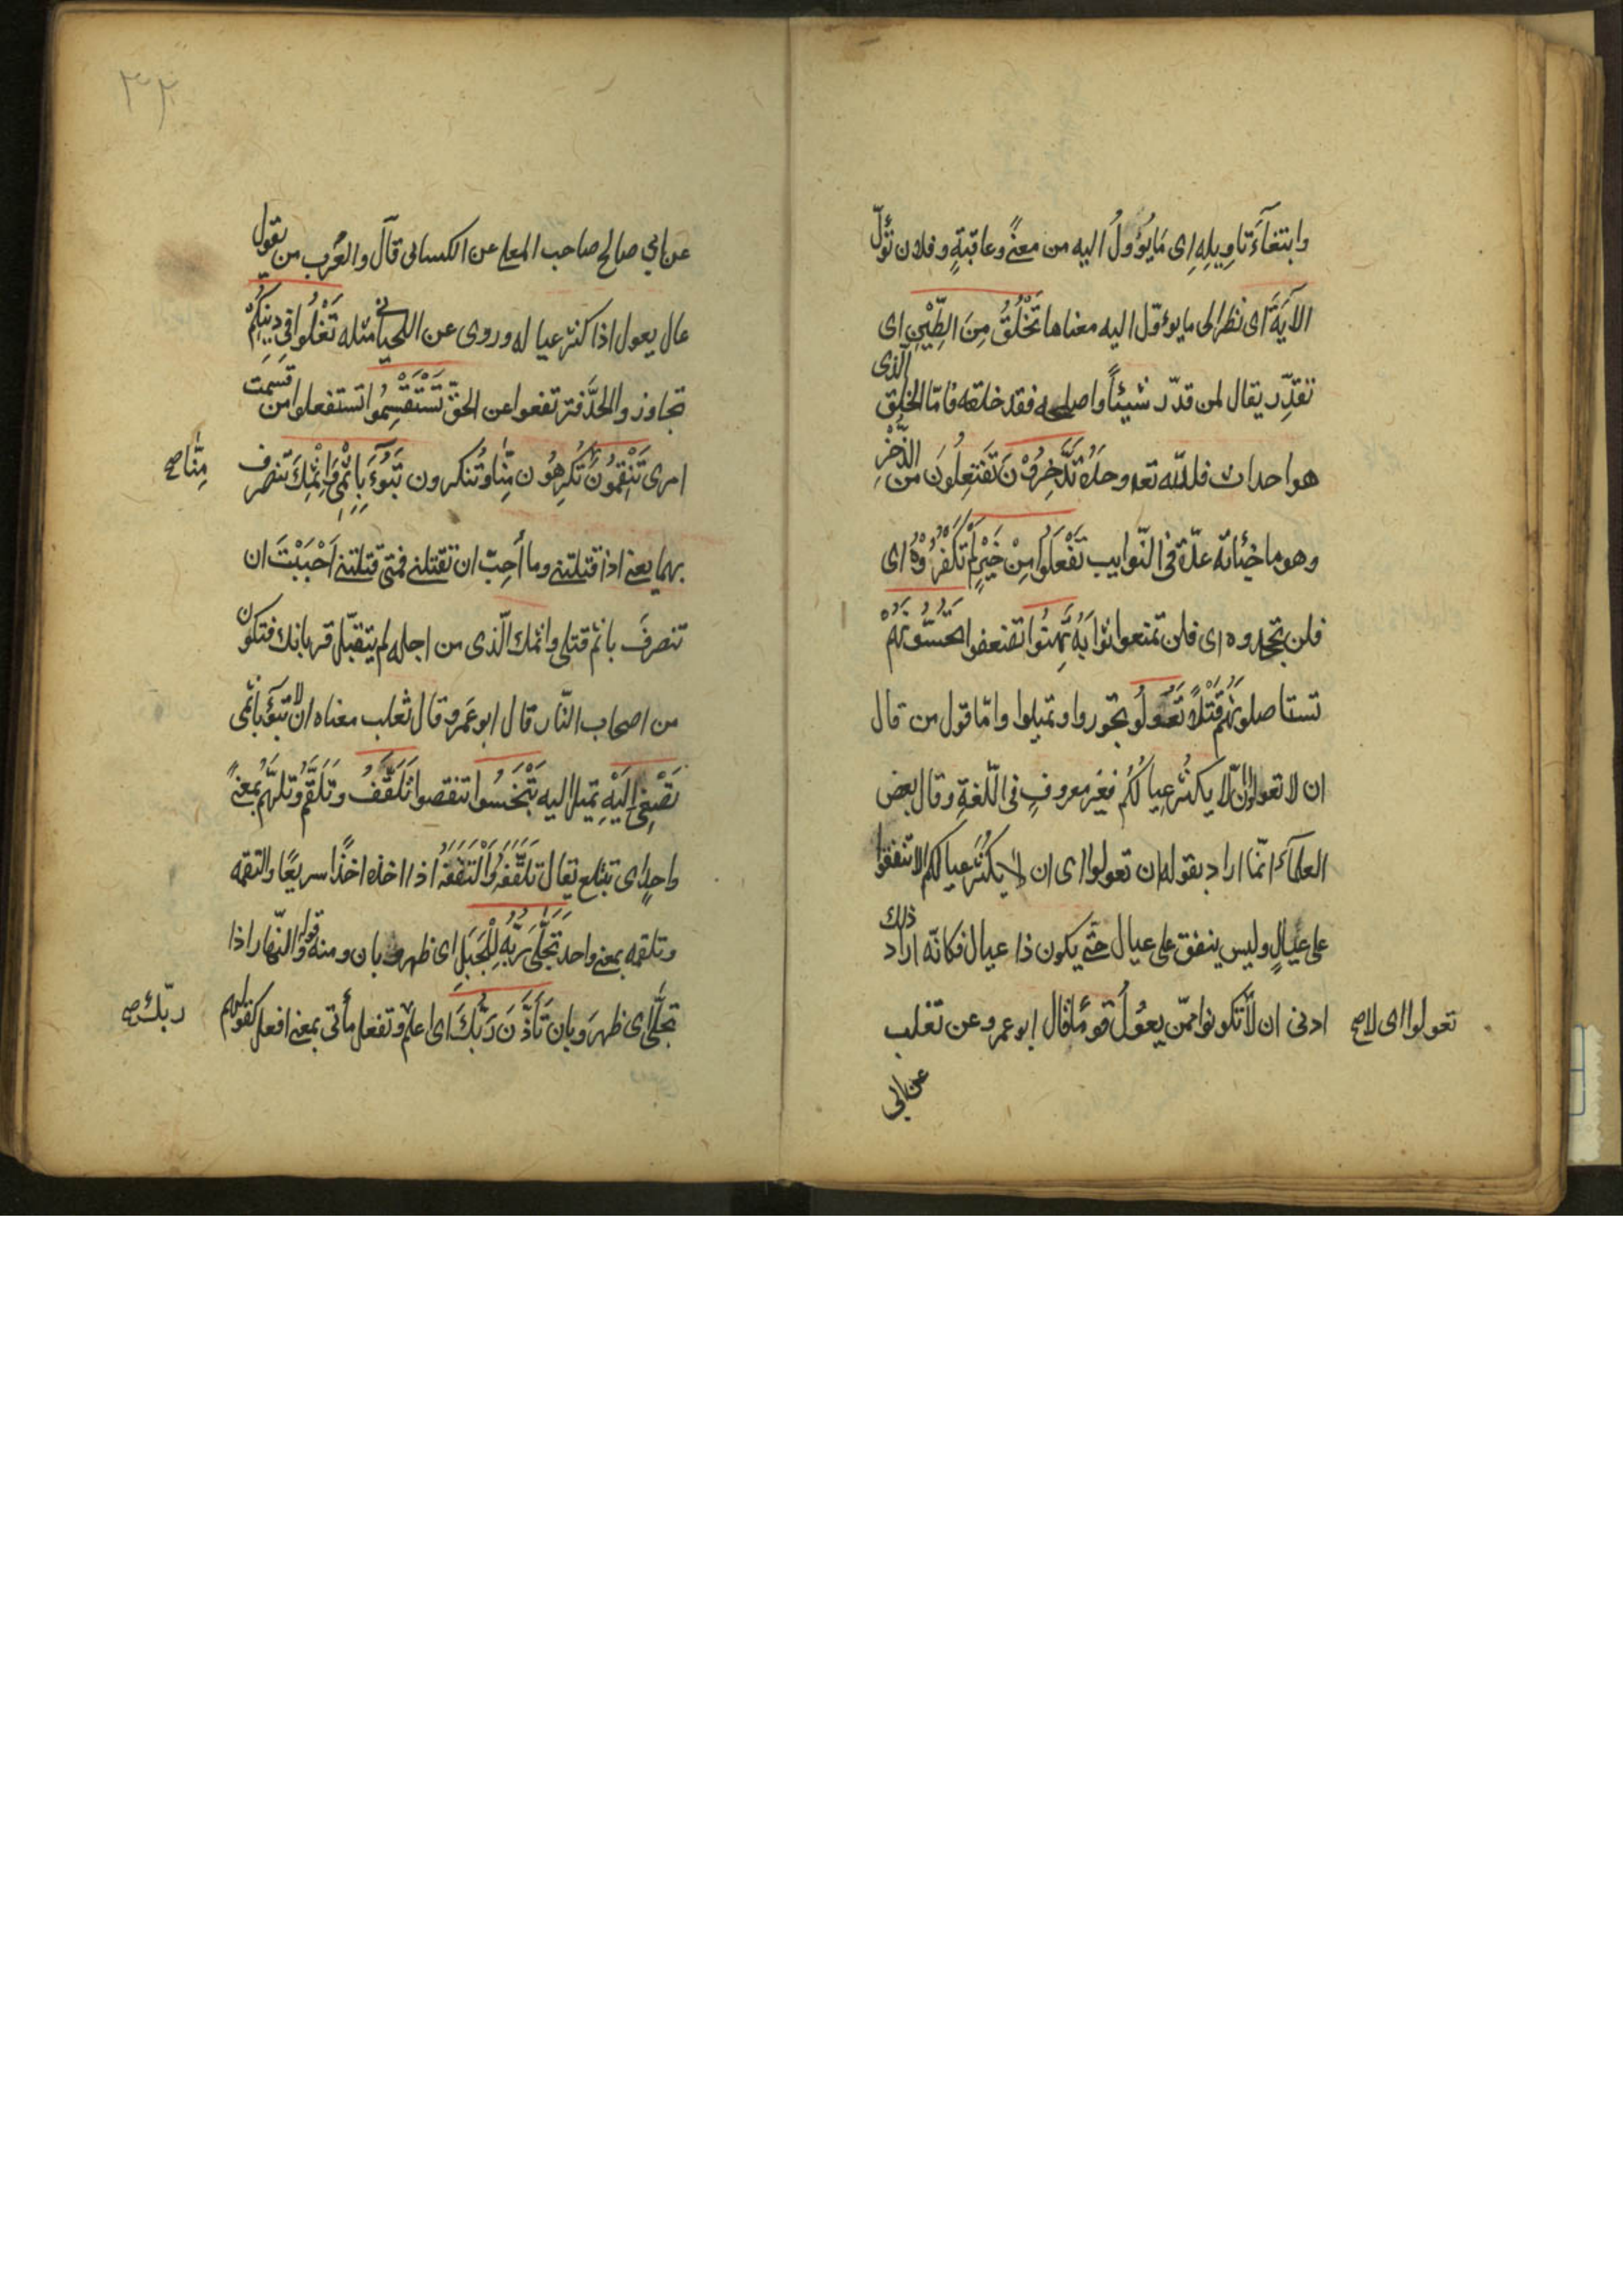 وابتغآء تاويلِهِ اى مَا يؤولُ اليه من معنًى وعاقبةٍ وفلان تؤلّ
الآيَةَ اى نظر الى ما يوءول اليه معناها تَخْلُقُ مِنَ الطِّيْنِ اى
تقدِّر يقال لمن قدّر شيئاً واصلحه فقد خلقه فامّا الخلق الّذى
هو احداث فللّه تعا وحدَهُ تَدَّخِرُوْنَ تَفتعِلُونَ من الذّخْرِ
وهو ما خبّاته عدّة فى النّوايب تَفْعَلُوا مِنْ خَيْرٍ لَمْ تكفَرُوْهُ اى
فلن تجحدوه اى فلن تمنعوا ثوابَهُ تَهِنُوا تضعفوا تَحُسُّونَهُمْ
تستاصلونَهُمْ قَتْلاً تَعُولُوا تجوروا وتميلوا وامّا قول من قال
ان لا تعولوا ان لّا يكثُر عيالُكُم فغير معروفٍ فى اللّغةِ وقال بعض
العلمآء انّما اراد بقوله ان تعولوا اى ان لا يكثُر عيالكم الا تنفقوا
على عيالٍ وليس ينفق على عيال حتّى يكون ذا عيال فكانّه اراد ذلك
ادنى ان لّا تكونوا ممّن يعُولُ قومًا قال ابو عمرو عن ثعلب
تعولوا اى لا صح
عن ابى
عن ابي صالح صاحب المعلى عن الكسائى قال والعرب من يقول
عال يعول اذا كثر عياله وروى عن اللحيانى مثله تَغْلُوا فِى دِينِكُمْ
تجاوزوا الحدَّ فترتفعوا عن الحقّ تَسْتَقْسِمُوا تستفعلوا من قسمت
امرى تَنْقِمُونَ تَكرهُون مِنَّا وتُنكرون تَبُوْءَ بِاِثْمِى وَاِثْمِكَ تنصرف
مِنَّا صح
بهما يعنى اذا قتلتنى وما اُحِبّ ان تقتلنى فمتى قتلتنى اَحْبَبْتَ ان
تنصرفَ باثم قتلى واثمك الّذى من اجله لم يتقبّل قربانك فتكون
من اصحاب النّار قال ابو عَمرو قال ثعلب معناه ان لا تبوْءَ باثمى
تَصْغِى اِلَيْهِ تميل اليه تَبْخَسُوا تنقصوا تَلَقَّفُ وتَلَقَّمُ وتَلَهَّمُ بمعنًى
واحدٍ اى تبتلع يقال تَلَقَّفَهُ وَالْتَقَفَهُ اذا اخذه اخذًا سريعًا والتقمه
وتلقمه بمعنى واحد تَجَلَّى رَبُّهُ لِلْجَبَلِ اى ظهر وبان ومنه قوله والنّهار اذا
تجلّى اى ظهرَ وبان تَاَذَّنَ رَبُّكَ اى اعلَمَ وتفعل ياتى بمعنى افعل كقولهم
ربّك صح